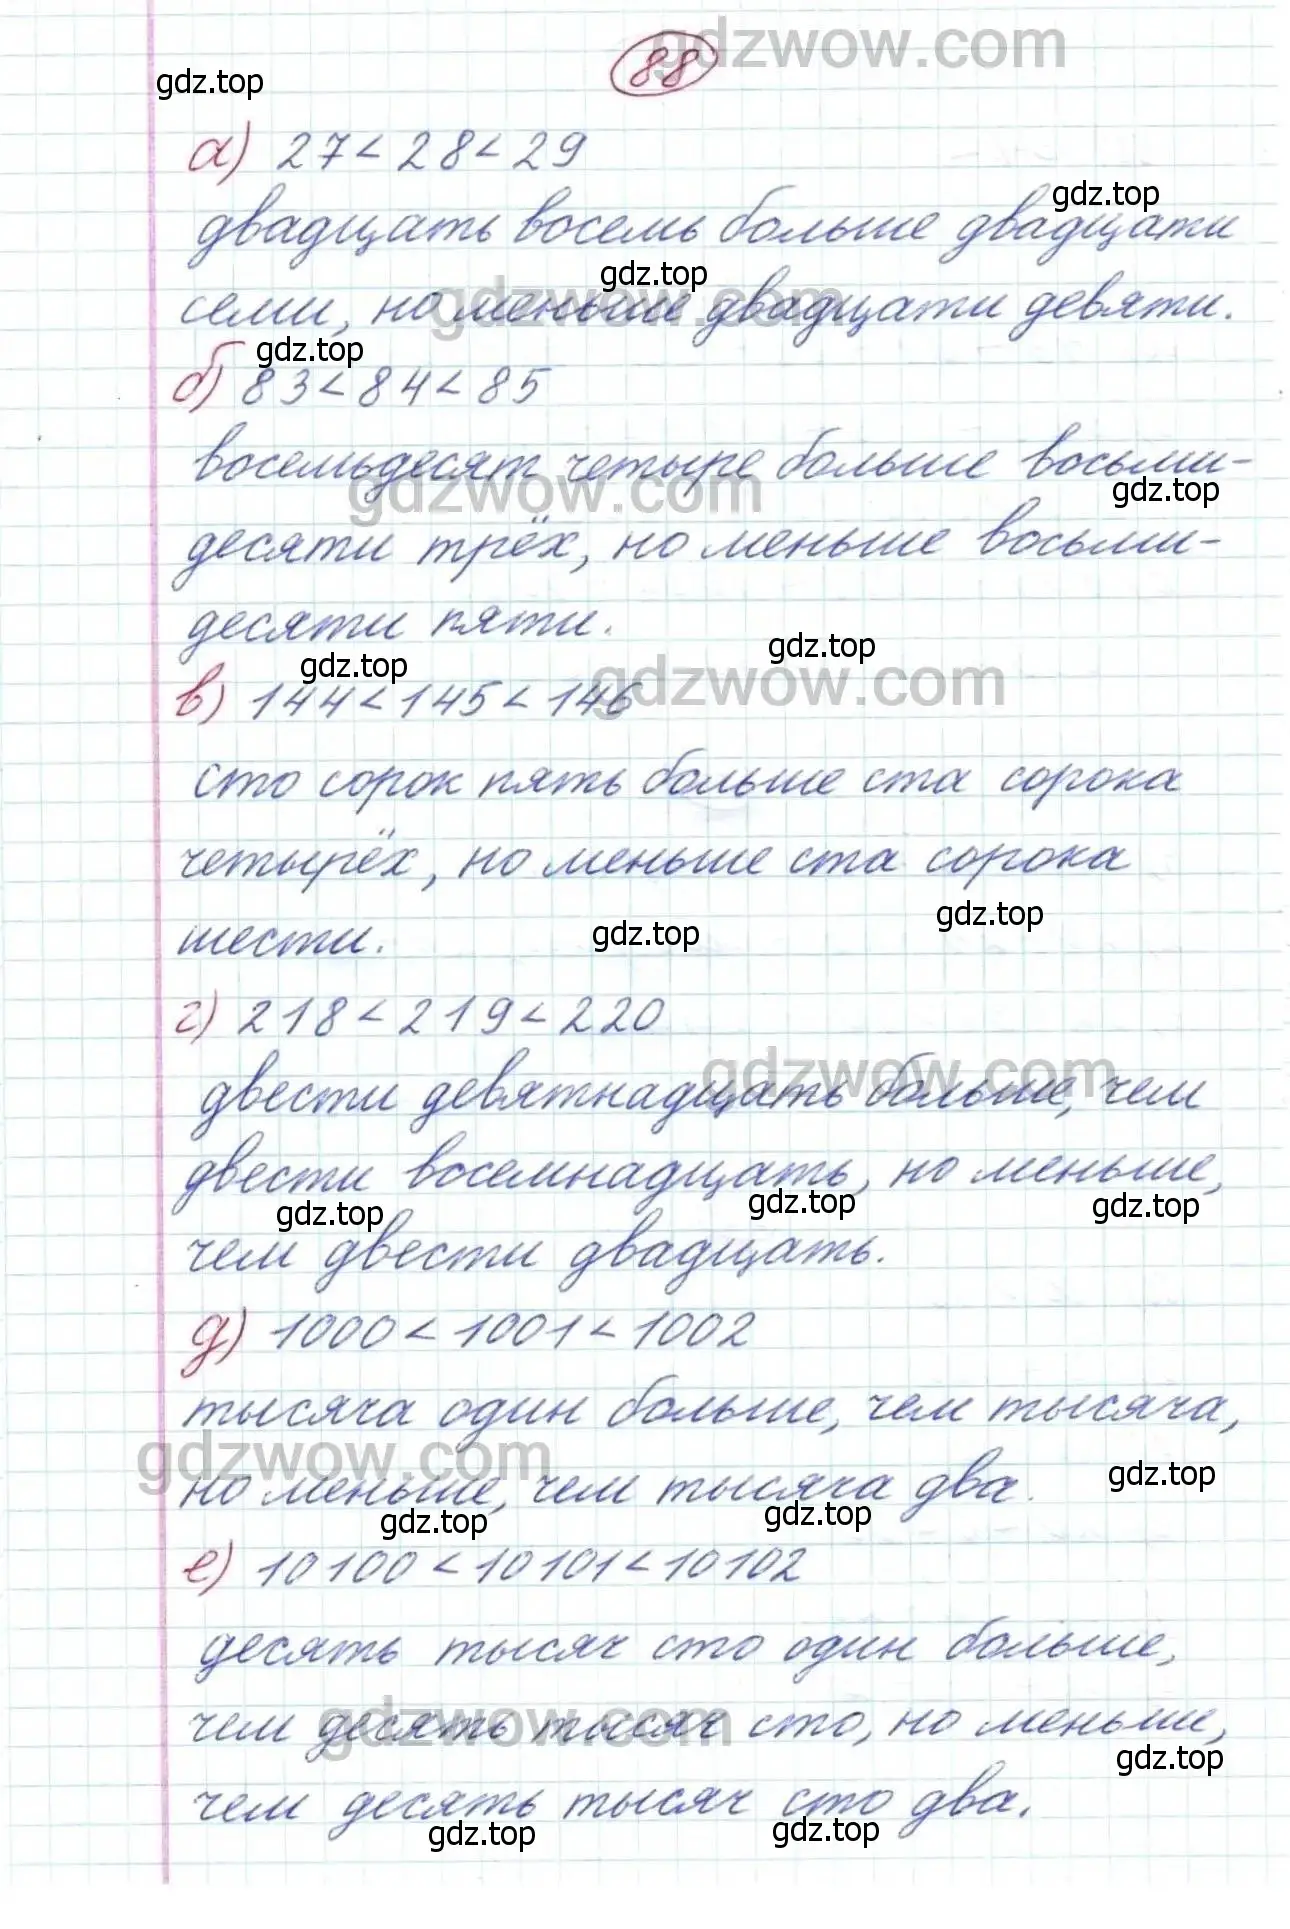 88
gdzwow.com
gdz.top
а) 27 < 28 < 29
gdz.top
двадцать восемь больше двадцати
gdz.top
семи, но меньше двадцати девяти.
gdzwow.com
gdz.top
б) 83 < 84 < 85
восемьдесят четыре больше восьми-
gdzwow.com
gdz.top
десяти трёх, но меньше восьми-
десяти пяти.
gdz.top
gdz.top
gdzwow.com
в) 144 < 145 < 146
сто сорок пять больше ста сорока
четырёх, но меньше ста сорока
gdz.top
gdz.top
шести.
г) 218 < 219 < 220
gdzwow.com
двести девятнадцать больше, чем
двести восемнадцать, но меньше,
gdz.top
gdz.top
gdz.top
чем двести двадцать.
д) 1000 < 1001 < 1002
тысяча один больше, чем тысяча,
gdzwow.com
gdz.top
но меньше, чем тысяча два.
gdz.top
gdz.top
е) 10100 < 10101 < 10102
десять тысяч сто один больше,
чем десять тысяч сто, но меньше,
gdzwow.com
gdz.top
чем десять тысяч сто два.
gdz.top
gdz.top